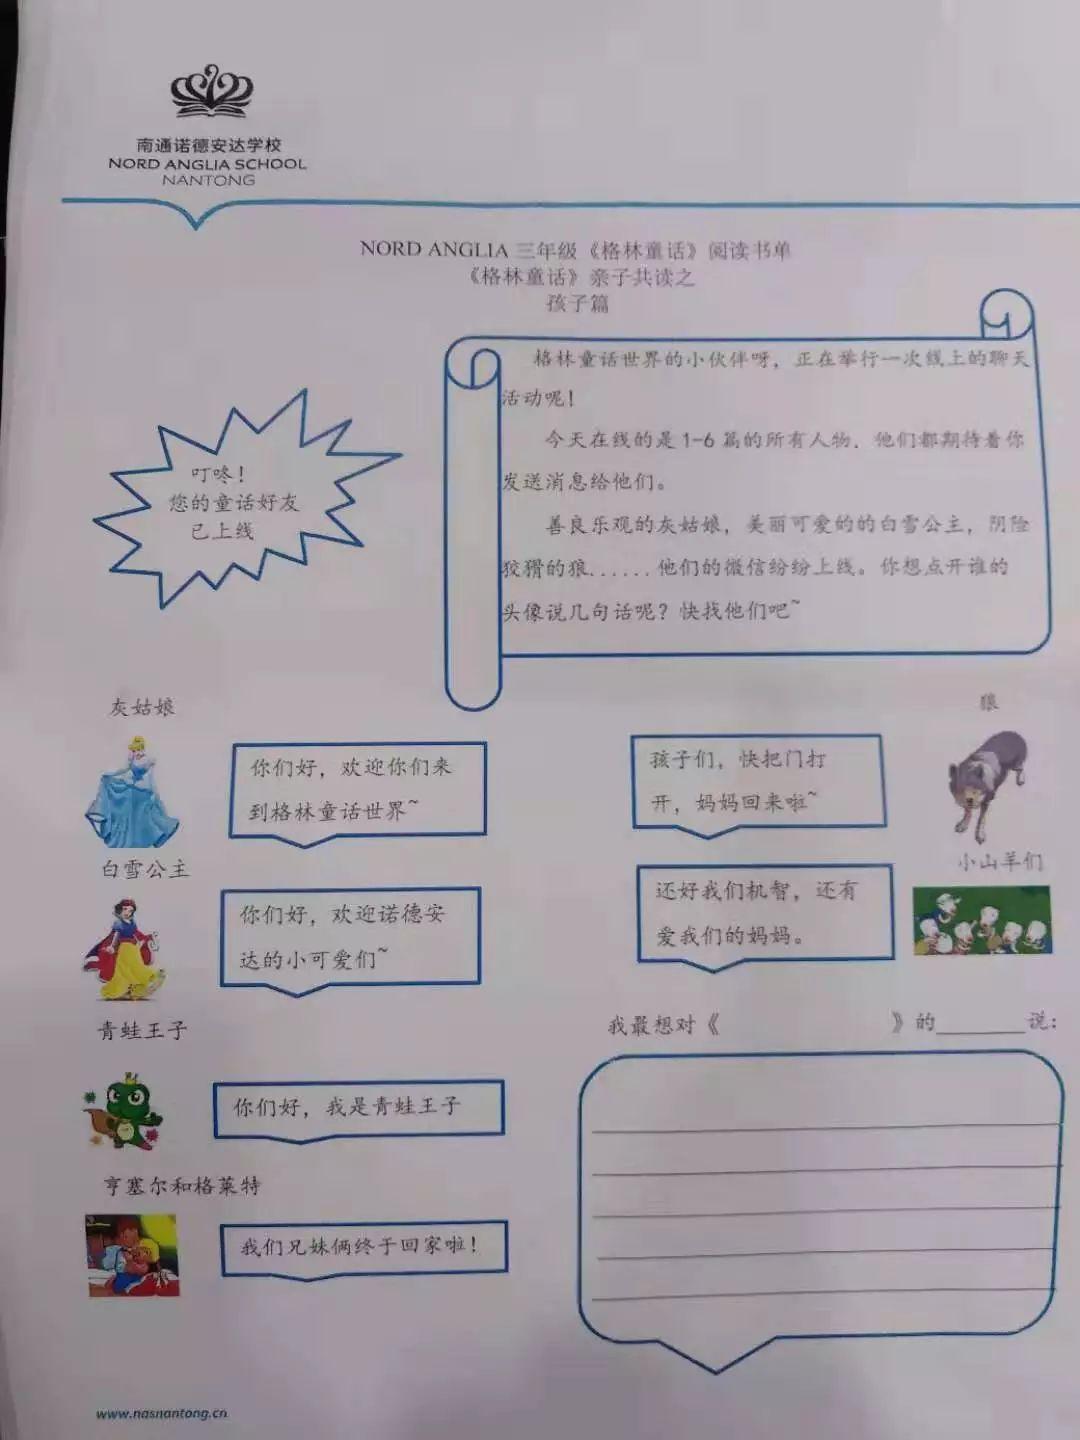 南通诺德安达学校
NORD ANGLIA SCHOOL
NANTONG
NORD ANGLIA 三年级《格林童话》阅读书单
《格林童话》亲子共读之
孩子篇
叮咚！
您的童话好友
已上线
格林童话世界的小伙伴呀，正在举行一次线上的聊天
活动呢！
今天在线的是 1-6 篇的所有人物，他们都期待着你
发送消息给他们。
善良乐观的灰姑娘，美丽可爱的的白雪公主，阴险
狡猾的狼......他们的微信纷纷上线。你想点开谁的
头像说几句话呢？快找他们吧~
灰姑娘
你们好，欢迎你们来
到格林童话世界~
白雪公主
你们好，欢迎诺德安
达的小可爱们~
青蛙王子
你们好，我是青蛙王子
亨塞尔和格莱特
我们兄妹俩终于回家啦！
狼
孩子们，快把门打
开，妈妈回来啦~
小山羊们
还好我们机智，还有
爱我们的妈妈。
我最想对《 》的_______说：
www.nasnantong.cn